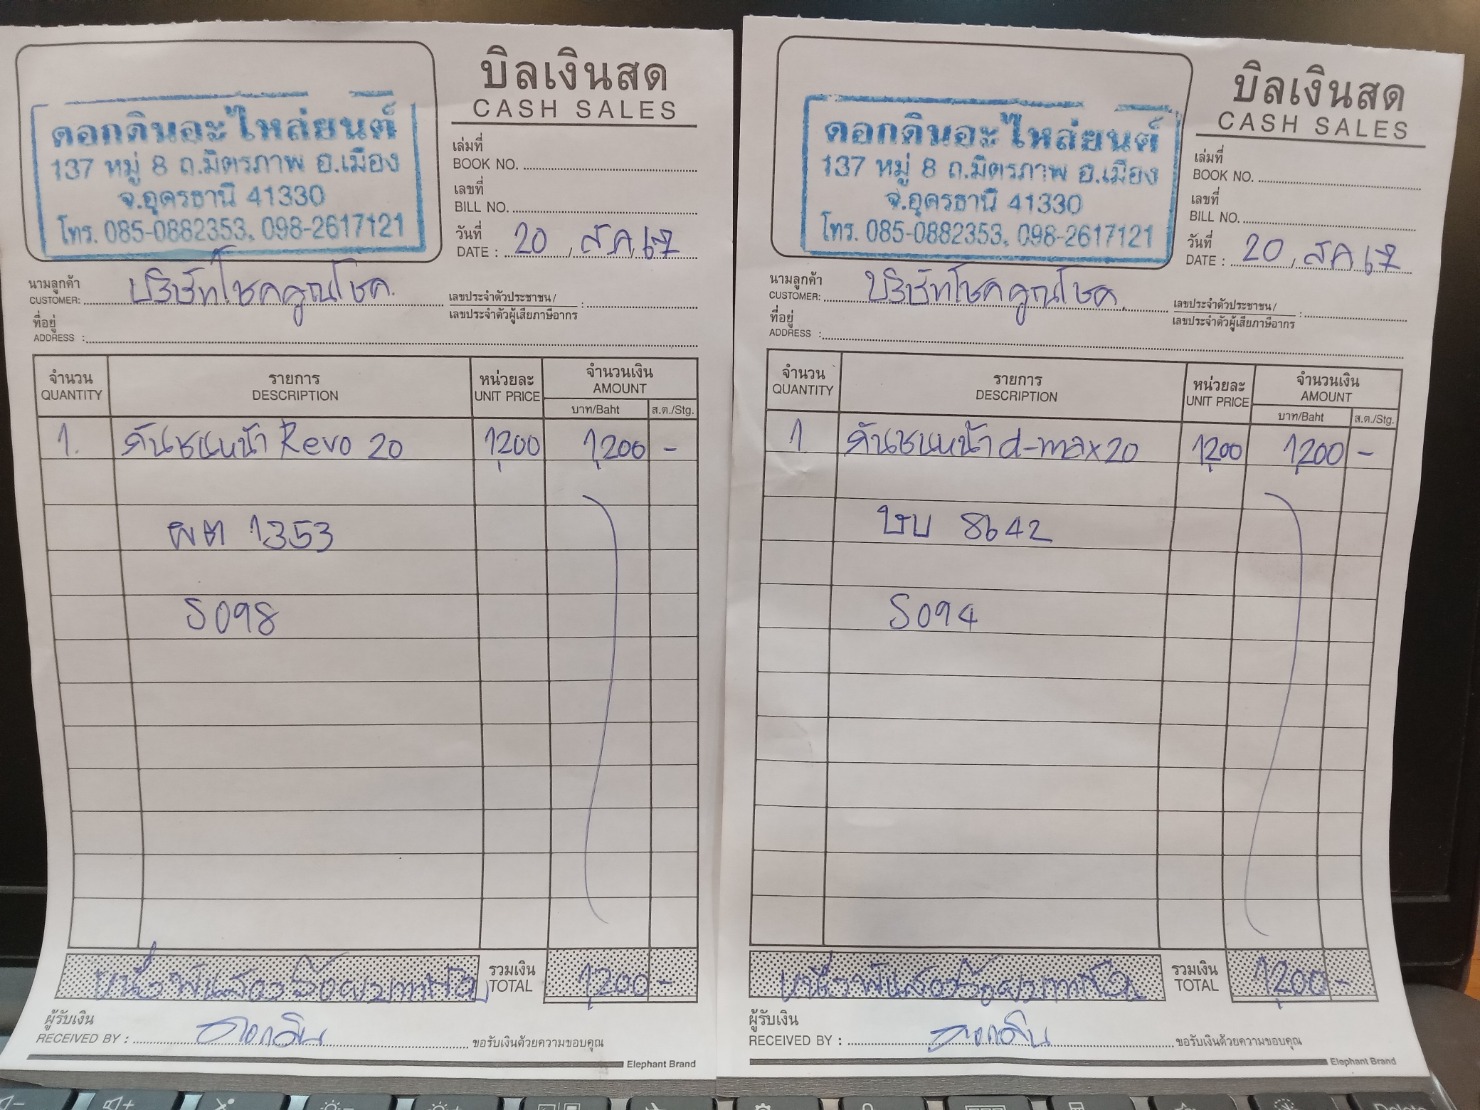 บิลเงินสด
CASH SALES
ดอกดินอะไหล่ยนต์
137 หมู่ 8 ถ.มิตรภาพ อ.เมือง
จ.อุดรธานี 41330
โทร. 085-0882353, 098-2617121
เล่มที่
BOOK NO.
เลขที่
BILL NO.
วันที่
DATE : 20 , สค, 67
นามลูกค้า
CUSTOMER: บริษัทโชคคูณโชค
เลขประจำตัวประชาชน / :
เลขประจำตัวผู้เสียภาษีอากร
ที่อยู่
ADDRESS :
จำนวน รายการ หน่วยละ จำนวนเงิน
QUANTITY DESCRIPTION UNIT PRICE AMOUNT
บาท/Baht ส.ต./Stg.
1. กันชนหน้า Revo 20 1,200 1,200 -
ผต 1353
S098
หนึ่งพันสองร้อยบาทถ้วน รวมเงิน
TOTAL 1,200 -
ผู้รับเงิน
RECEIVED BY : ดอกดิน ขอรับเงินด้วยความขอบคุณ
Elephant Brand
บิลเงินสด
CASH SALES
ดอกดินอะไหล่ยนต์
137 หมู่ 8 ถ.มิตรภาพ อ.เมือง
จ.อุดรธานี 41330
โทร. 085-0882353, 098-2617121
เล่มที่
BOOK NO.
เลขที่
BILL NO.
วันที่
DATE : 20 , สค, 67
นามลูกค้า
CUSTOMER: บริษัทโชคคูณโชค
เลขประจำตัวประชาชน / :
เลขประจำตัวผู้เสียภาษีอากร
ที่อยู่
ADDRESS :
จำนวน รายการ หน่วยละ จำนวนเงิน
QUANTITY DESCRIPTION UNIT PRICE AMOUNT
บาท/Baht ส.ต./Stg.
1 กันชนหน้า d-max 20 1,200 1,200 -
บบ 8642
S094
หนึ่งพันสองร้อยบาทถ้วน รวมเงิน
TOTAL 1,200 -
ผู้รับเงิน
RECEIVED BY : ดอกดิน ขอรับเงินด้วยความขอบคุณ
Elephant Brand